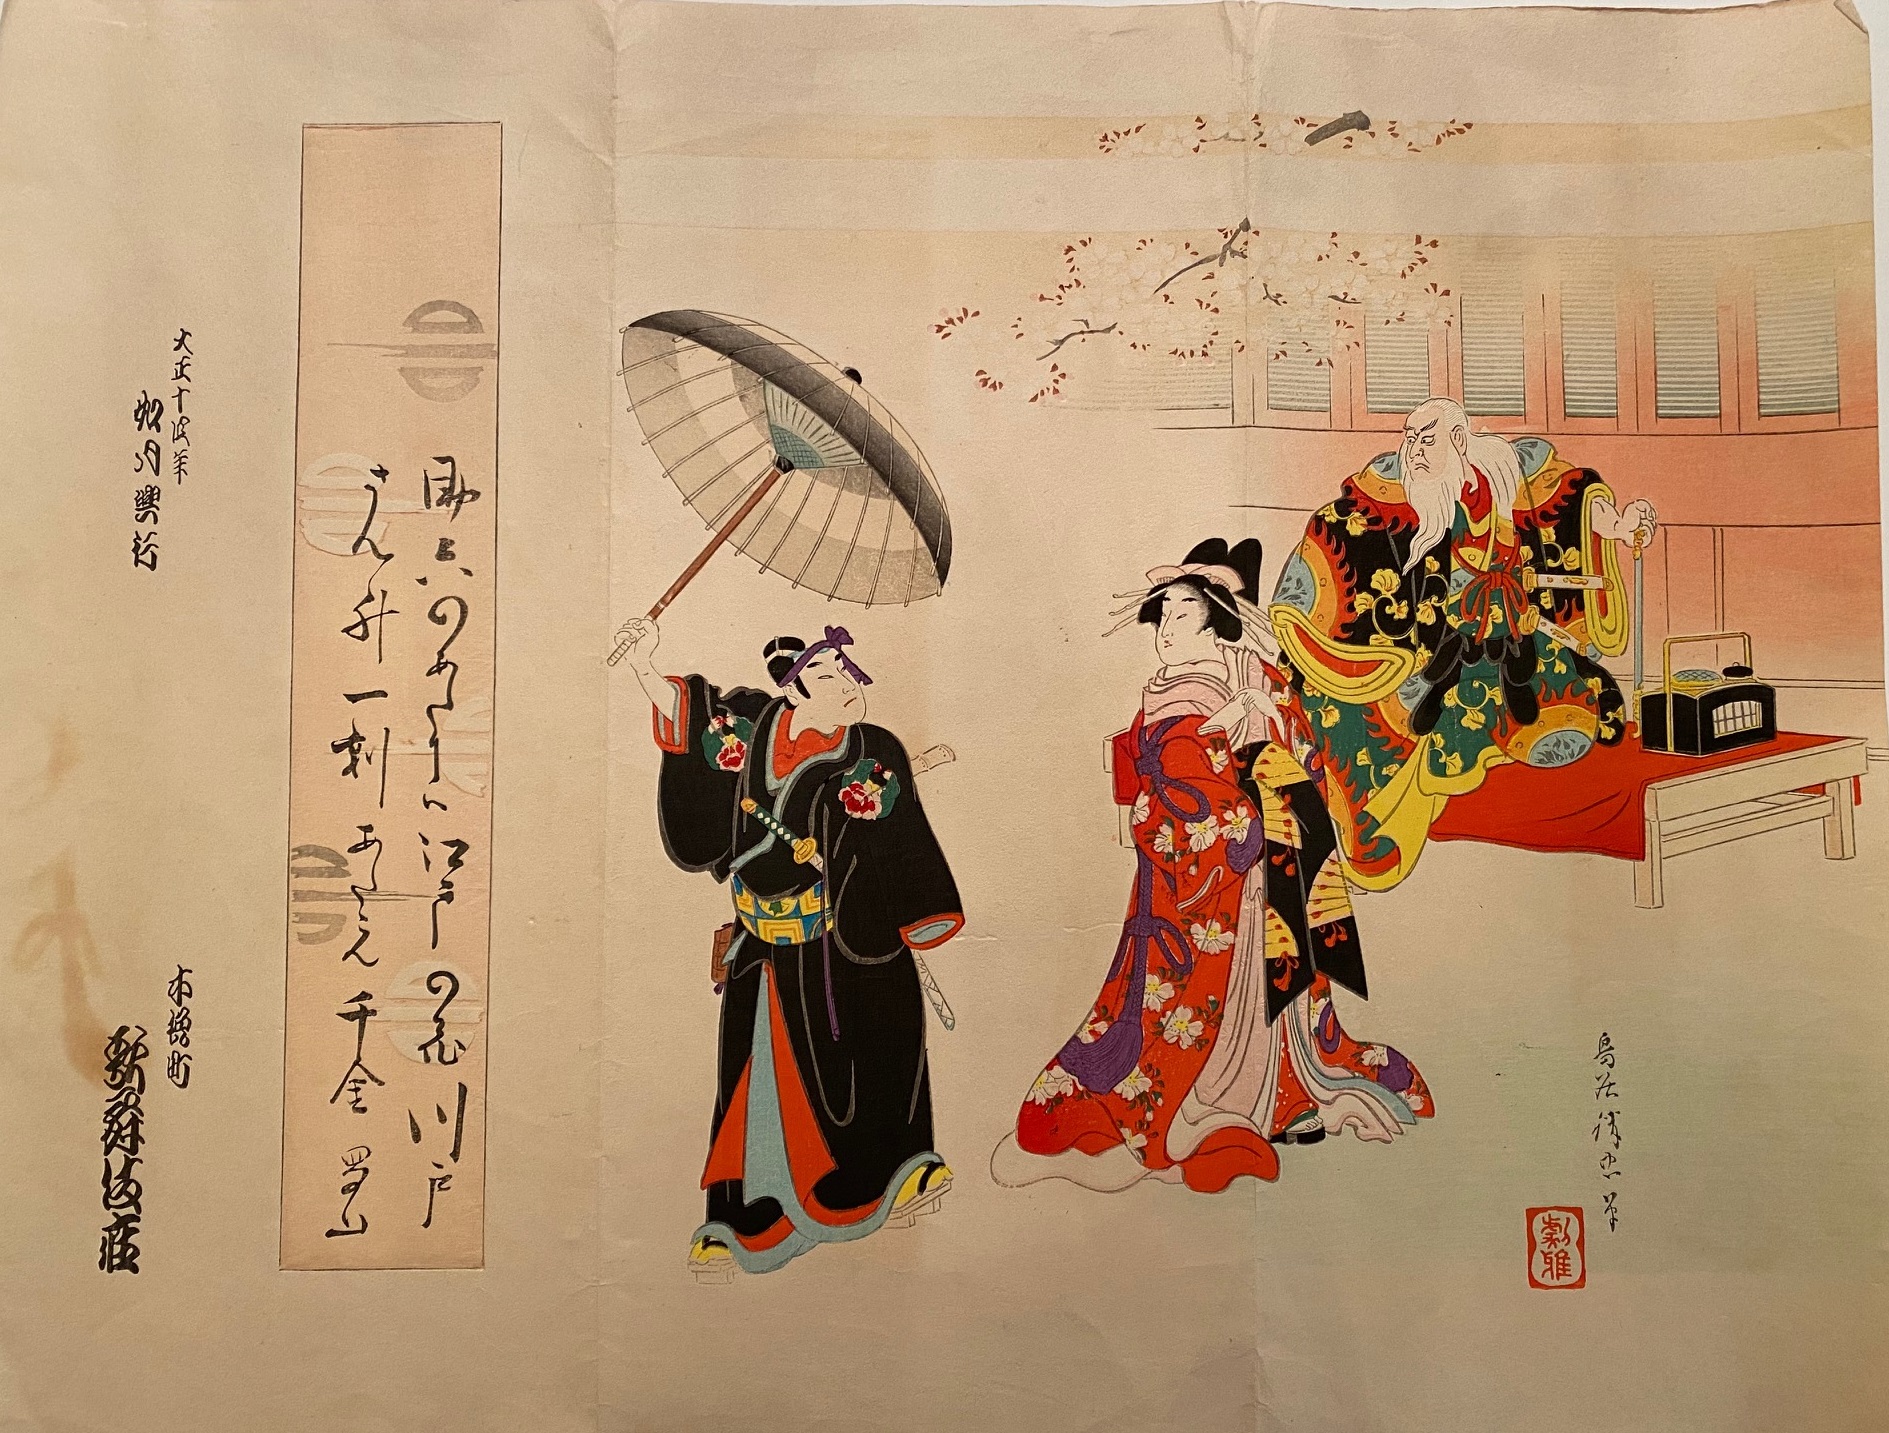 鳥居清忠筆
劇雅
助六のあたりハ江戸の花川戸
さん升一刻あたえ千金 蜀山
大正十年
月興行
木挽町
歌舞伎座